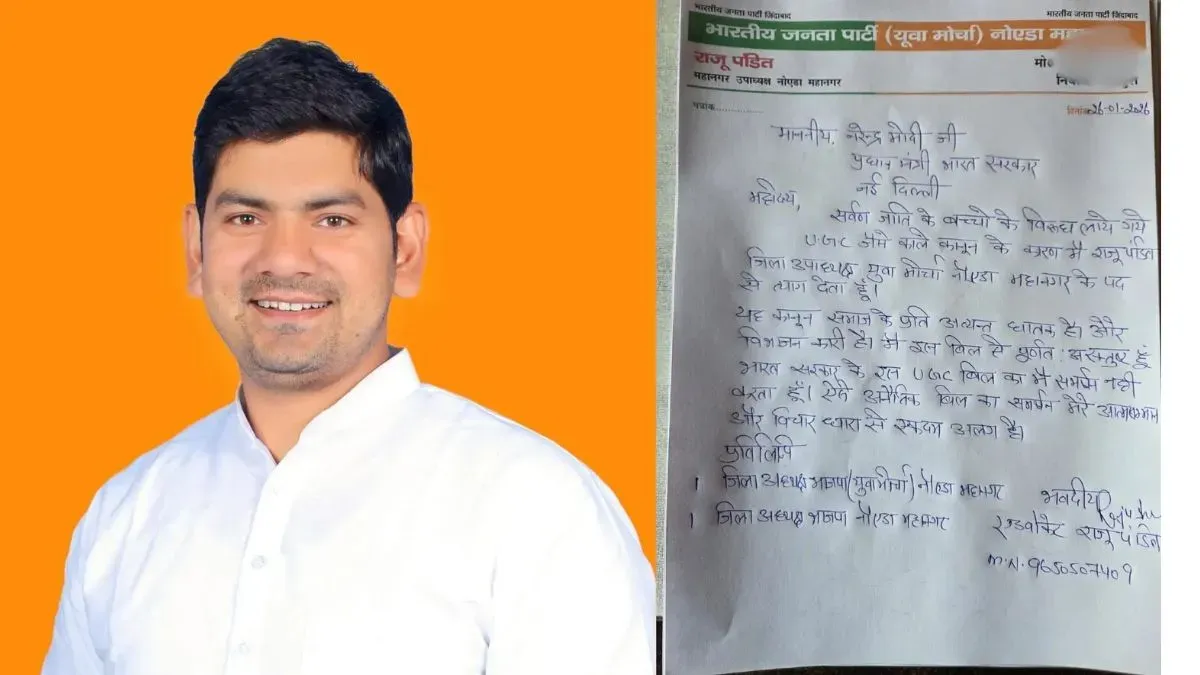 भारतीय जनता पार्टी जिंदाबाद भारतीय जनता पार्टी जिंदाबाद
भारतीय जनता पार्टी (युवा मोर्चा) नोएडा
राजू पंडित
महानगर उपाध्यक्ष नोएडा महानगर
पत्रांक............... दिनांक 26-01-2026
माननीय. नरेन्द्र मोदी जी
प्रधान मंत्री भारत सरकार
नई दिल्ली
महोदय,
सर्वण जाति के बच्चो के विरुध लाये गये
UGC जैसे काले कानून के कारण मै राजू पंडित
जिला उपाध्यक्ष युवा मोर्चा नोएडा महानगर के पद
से त्याग देता हूँ।
यह कानून समाज के प्रति अत्यन्त घातक है। और
विभाजन कारी है। मै इस बिल से पूर्णत: असंतुष्ट हूँ
भारत सरकार के इस UGC बिल का मै समर्थन नही
करता हूँ। ऐसे अनैतिक बिल का समर्थन मेरे आत्मसम्मान
और विचार धारा से एकदम अलग है।
प्रतिलिपि
1 जिला अध्यक्ष भाजपा (युवा मोर्चा) नोएडा महानगर
1 जिला अध्यक्ष भाजपा नोएडा महानगर
भवदीय
एडवोकेट राजू पंडित
M.N. 9650507409